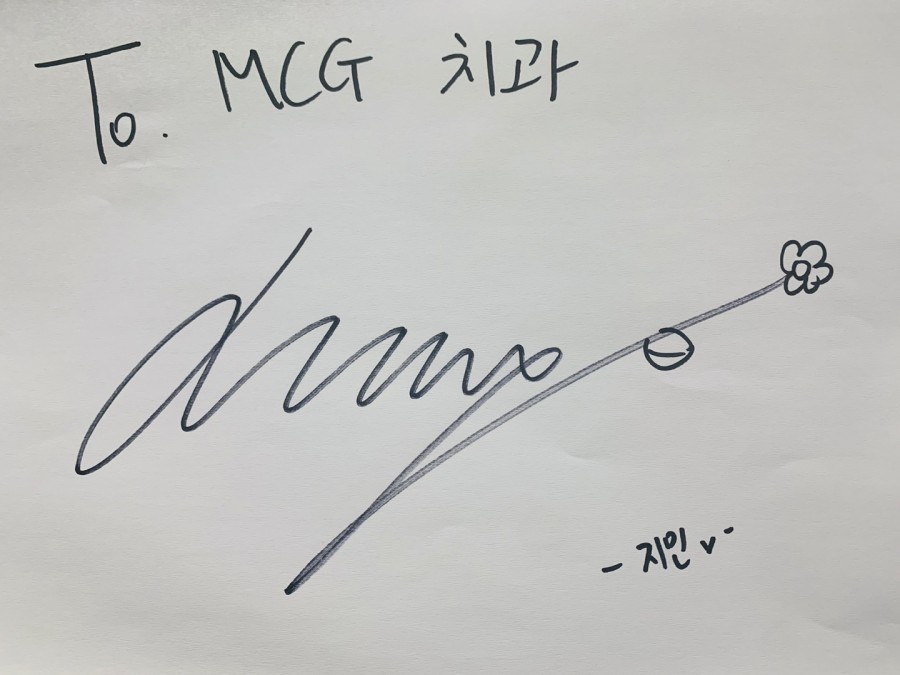 To. MCG 치과
- 지인 ♥ -